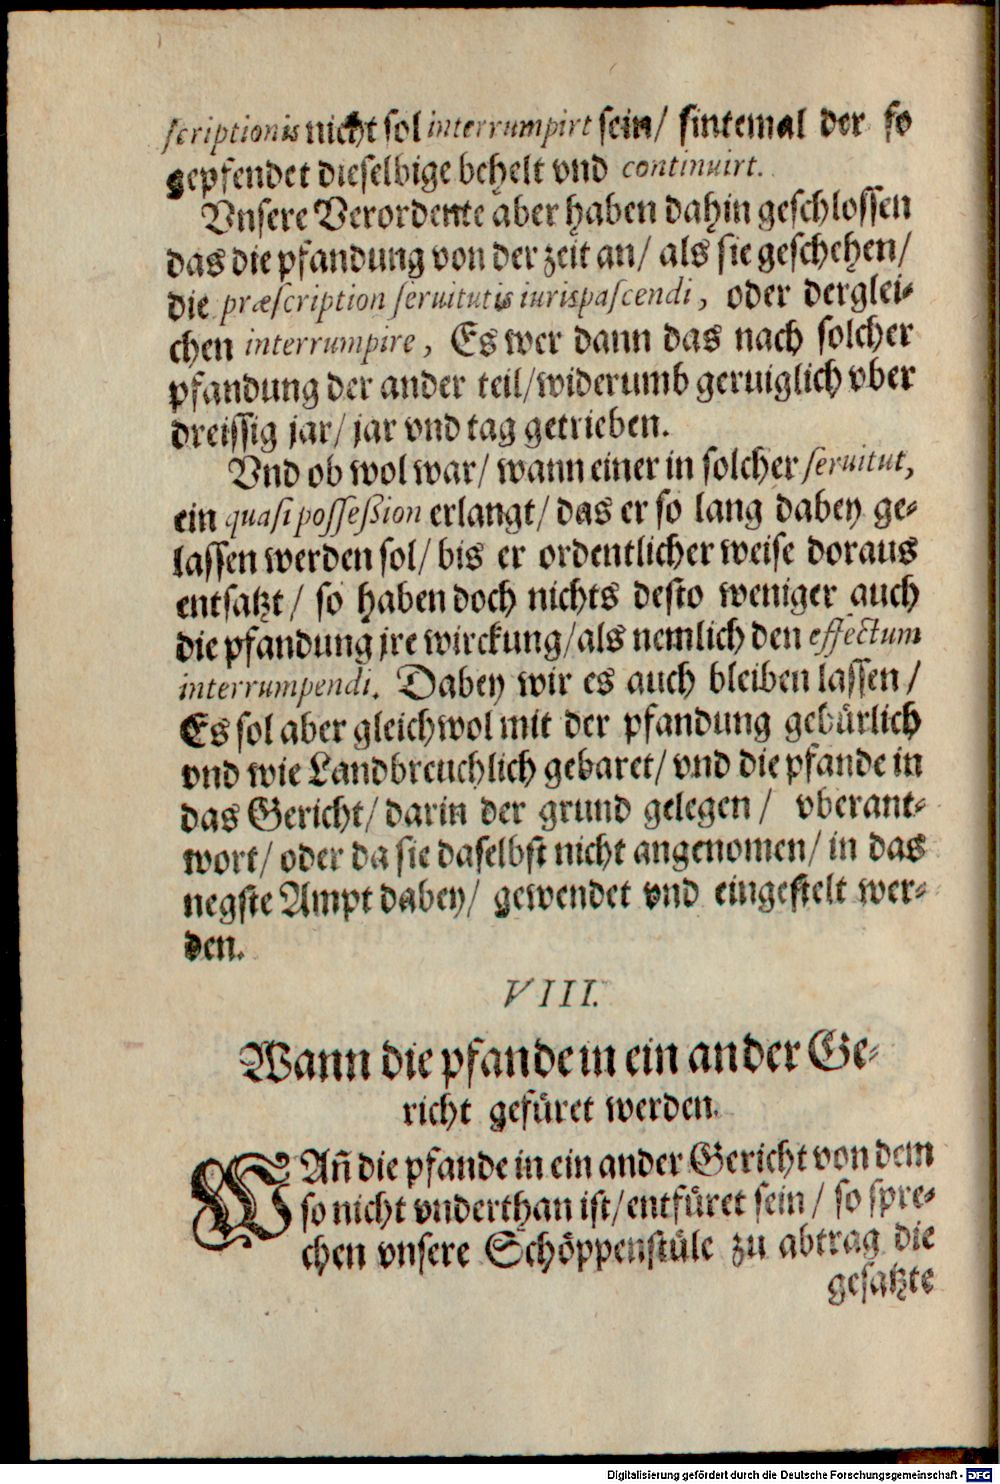 scriptionis nicht sol interrumpirt sein/ sintemal der so
gepfendet dieselbige behelt vnd continuirt.
Vnsere Verordente aber haben dahin geschlossen
das die pfandung von der zeit an/ als sie geschehen/
die præscription seruitutis iurispascendi, oder derglei-
chen interrumpire, Es wer dann das nach solcher
pfandung der ander teil/widerumb geruiglich vber
dreissig jar/ jar vnd tag getrieben.
Vnd ob wol war/ wann einer in solcher seruitut,
ein quasi posseßion erlangt/ das er so lang dabey ge-
lassen werden sol/ bis er ordentlicher weise doraus
entsatzt/ so haben doch nichts desto weniger auch
die pfandung jre wirckung/als nemlich den effectum
interrumpendi. Dabey wir es auch bleiben lassen/
Es sol aber gleichwol mit der pfandung gebürlich
vnd wie Landbreuchlich gebaret/ vnd die pfande in
das Gericht/ darin der grund gelegen/ vberant-
wort/ oder da sie daselbst nicht angenomen/ in das
negste Ampt dabey/ gewendet vnd eingestelt wer-
den.
VIII.
Wann die pfande in ein ander Ge-
richt gefüret werden.
WAñ die pfande in ein ander Gericht von dem
so nicht vnderthan ist/entfüret sein/ so spre-
chen vnsere Schöppenstüle zu abtrag die
gesatzte
Digitalisierung gefördert durch die Deutsche Forschungsgemeinschaft - DFG